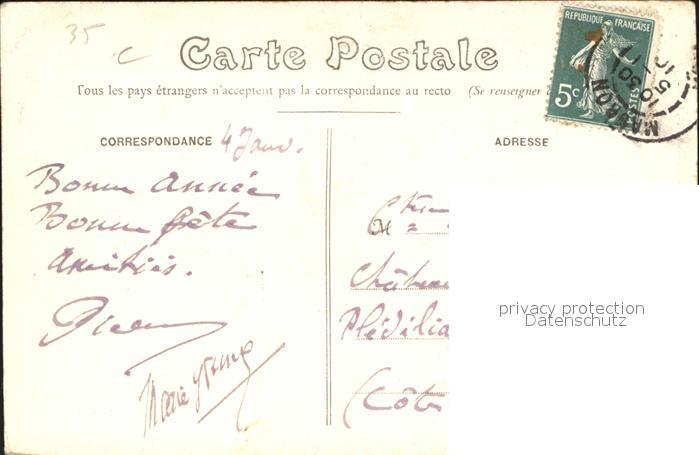 35
Carte Postale
Tous les pays étrangers n'acceptent pas la correspondance au recto (Se renseigner
REPUBLIQUE FRANÇAISE
5c POSTES
MAURON
CORRESPONDANCE
4 Janv.
ADRESSE
Bonne année
Bonne fête
Amitiés.
M
Château
Plédélia
(Côt
privacy protection
Datenschutz